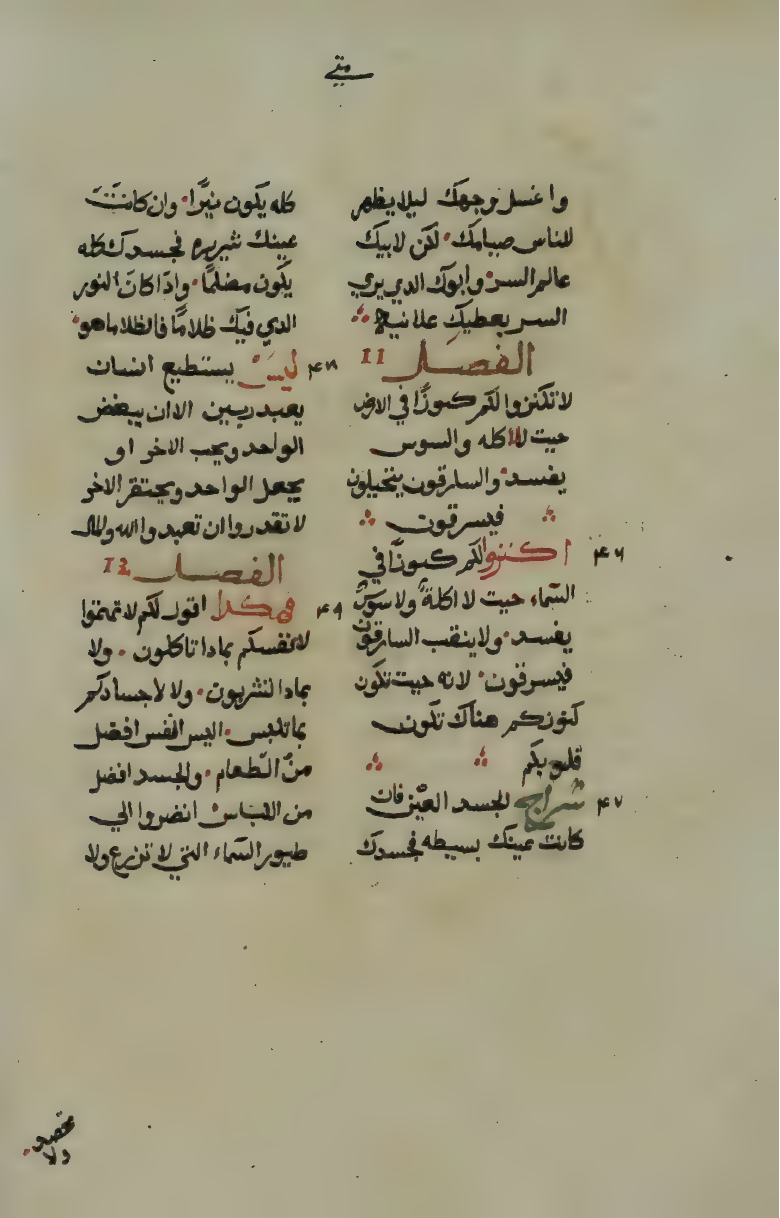 متي
واغسل وجهك ليلا يظهر
للناس صيامك لكن لابيك
عالم السر وابوك الدي يري
السر يعطيك علانيه
الفصل 11
لا تكنزوا لكم كنوزًا في الارض
حيت الاكله والسوس
يفسد والسارقون يتحيلون
فيسرقون
۴۶ اكنزوا لكم كنوزًا في
السّماء حيت لا اكلة ولا سوس
يفسد ولا ينقب السارقون
فيسرقون لانه حيت تكون
كنوزكم هناك تكون
قلوبكم
۴۷ سراج الجسد العيْن فان
كانت عينك بسيطه فجسدك
كله يكون نيّرا وان كانت
عينك شريره فجسدك كله
يكون مضلمًا واذا كان النور
الدي فيك ظلامًا فالظلام ما هو
۴۸ ليس يستطيع انسان
يعبد ربين الا ان يبغض
الواحد ويحب الاخر او
يجعل الواحد ويحتقر الاخر
لا تقدروا ان تعبدوا الله والمال
الفصل 12
۴۹ فهكدا اقول لكم لا تهتموا
لانفسكم بمادا تاكلون ولا
بمادا تشربون ولا لاجسادكم
بما تلبس اليس النفس افضل
من الطّعام والجسد افضل
من اللباس انضروا الي
طيور السّماء التي لا تزرع ولا
تحصد
ولا